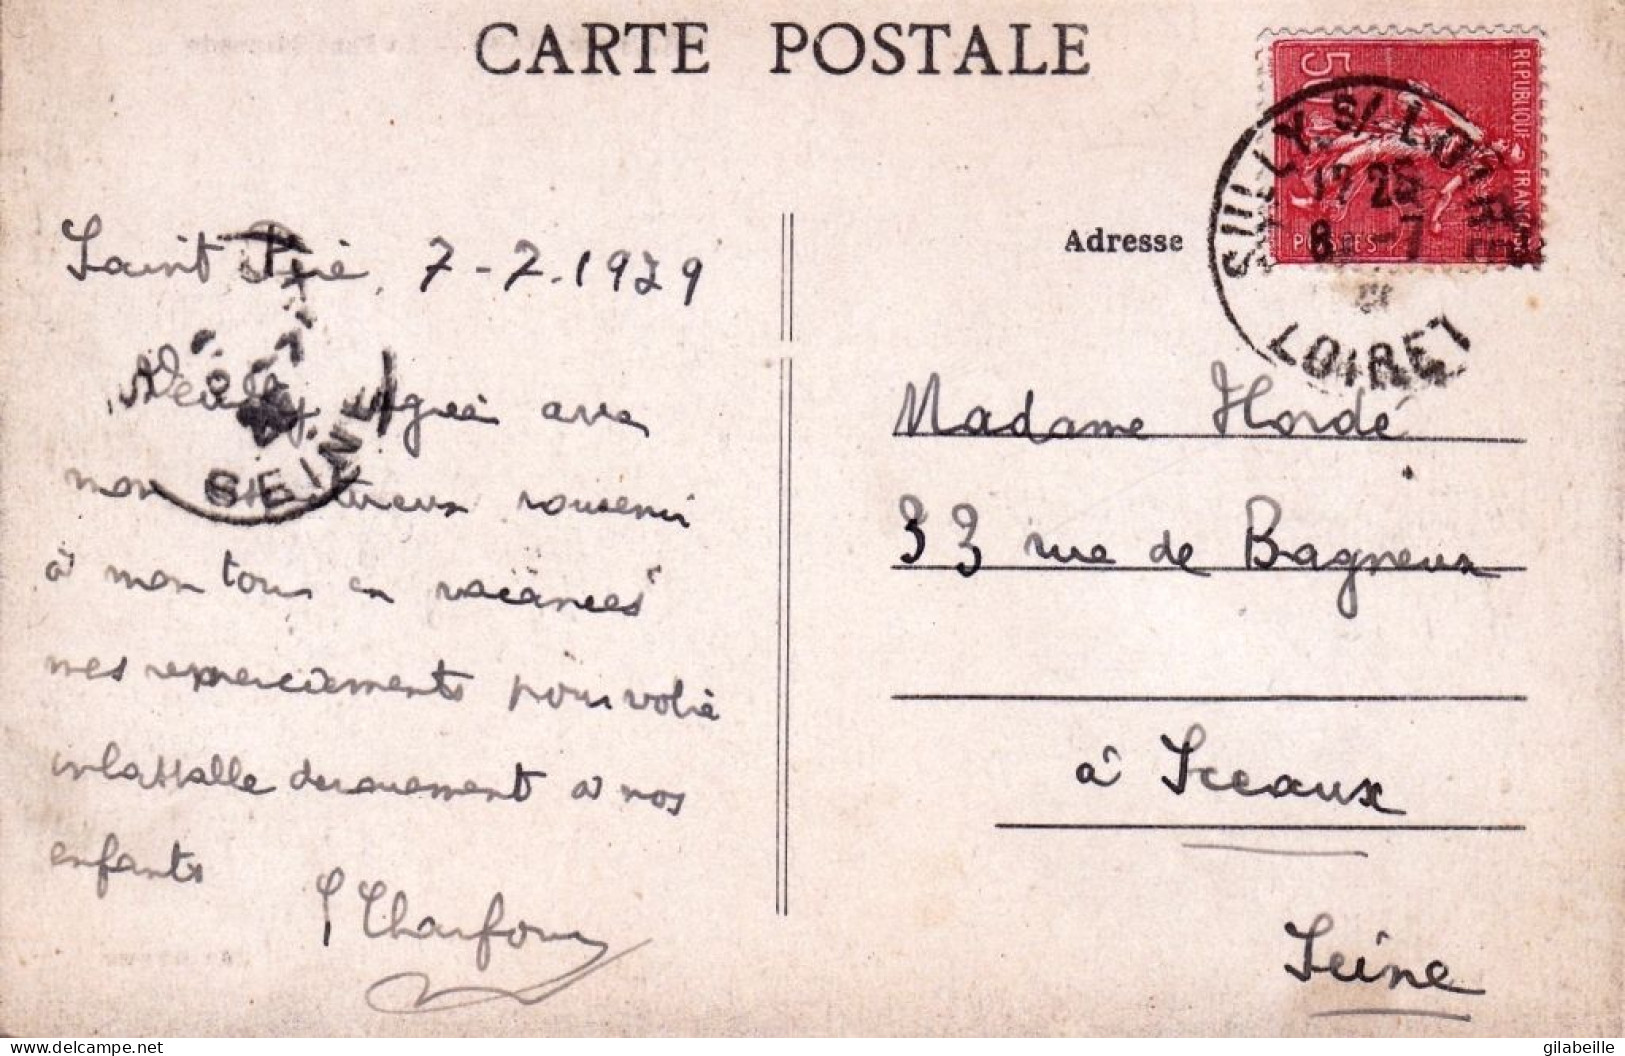 CARTE POSTALE
REPUBLIQUE FRANC
POSTES
SULLY S/ LOIRE
17 25
8 -7
LOIRET
Adresse
Saint 7-7-1929
Veuillez agréer avec
SEINE
mon souvenir
à mon tour en vacances
mes remerciements pour votre
inlassable dévouement à nos
enfants
Madame Hordé
33 rue de Bagneux
à Sceaux
Seine
gilabeille
delcampe.net